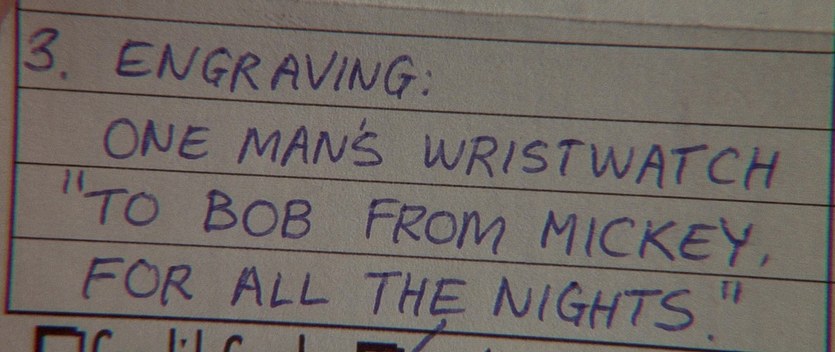 3. ENGRAVING:
ONE MAN'S WRISTWATCH
"TO BOB FROM MICKEY,
FOR ALL THE NIGHTS."